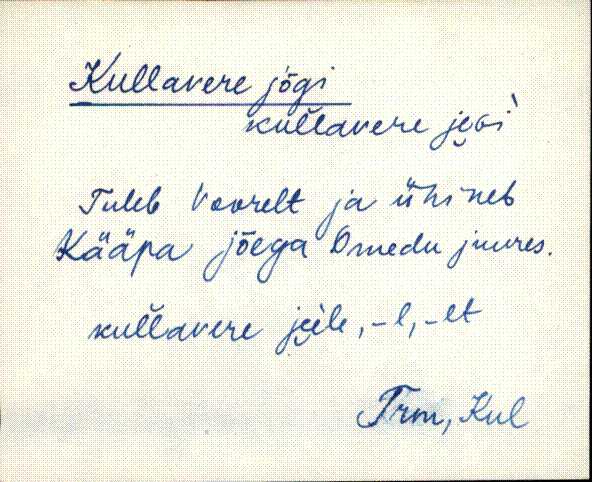 Kullavere jõgi
kullavere je̮G̀i
Tuleb Voorelt ja ühineb
Kääpa jõega Omedu juures.
kullavere je̮i̮le, -l, -lt
Trm, Kul